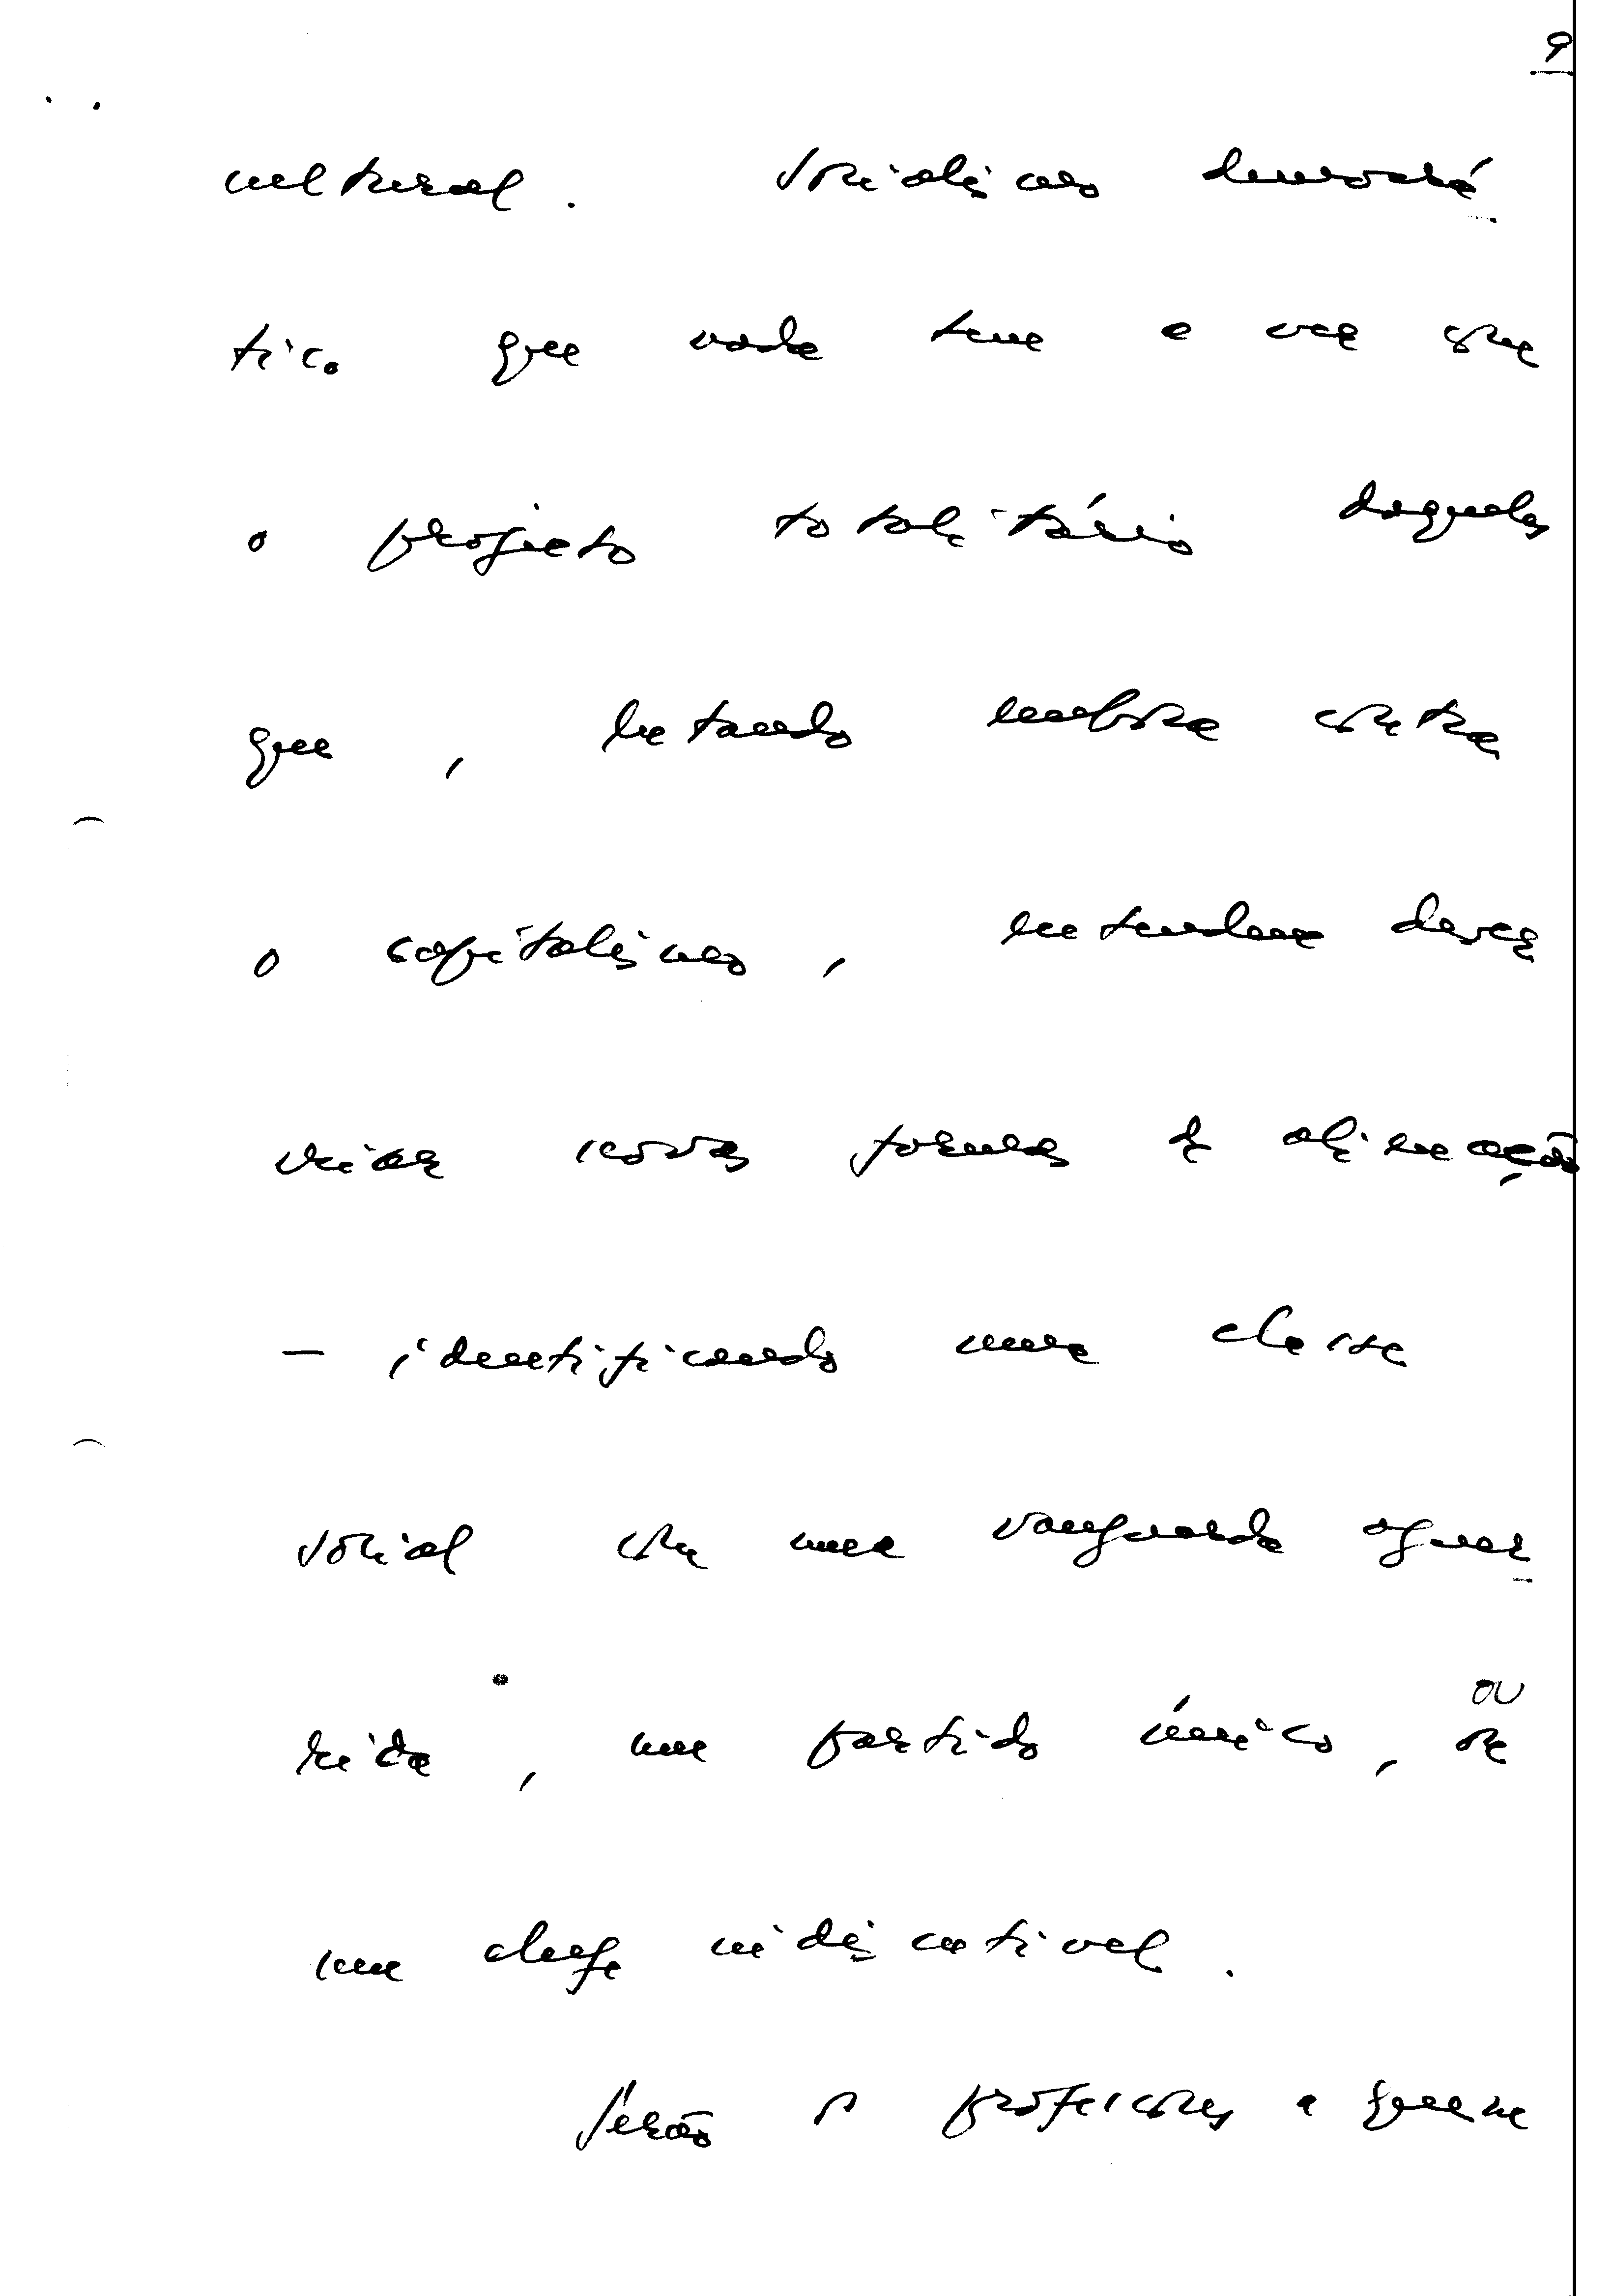 9
cultural. Socialismo democrá
tico que nada tem a ver com
o projeto totalitário daqueles
que, lutando embora contra
o capitalismo, entendem dever
criar novas formas de alienação
— identificando uma classe
social com uma vanguarda aguer
rida, um partido único, ou
um chefe indiscutível.
Serão os professores a quem